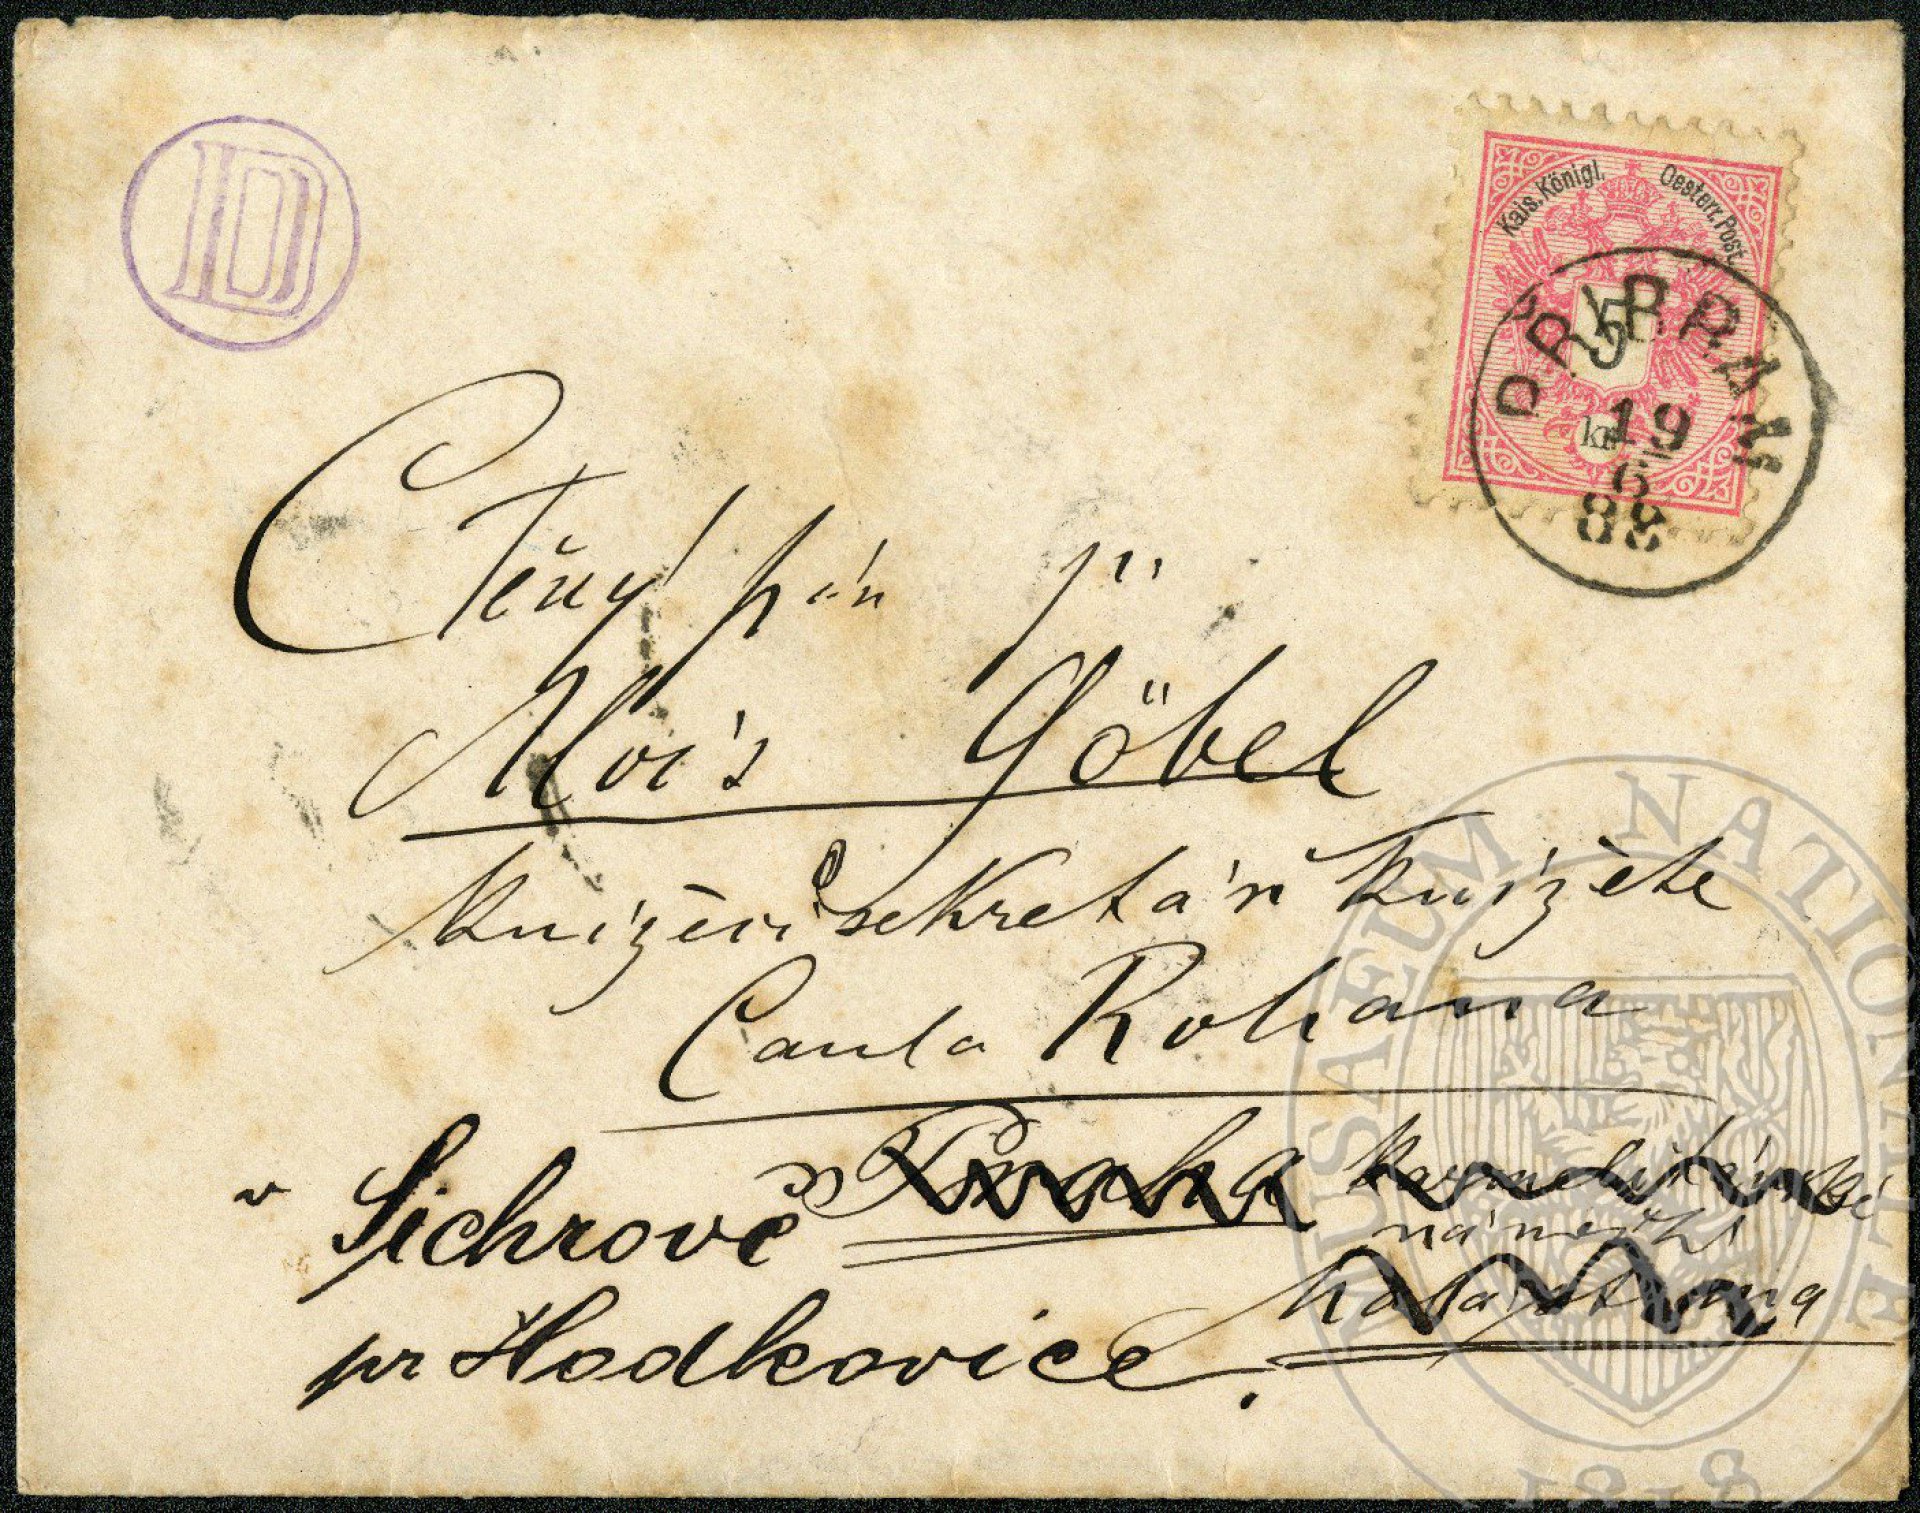 D
Kais. Königl. Oesterr. Post.
5
kr
19
6
88
Ctěný pán
Alois Göbel
knížecí sekretář knížete
Camla Rohana
Praha Karmelitánské
náměstí
v Sichrově
pr Hodkovice.
MUSAEUM NATIONALE
1818